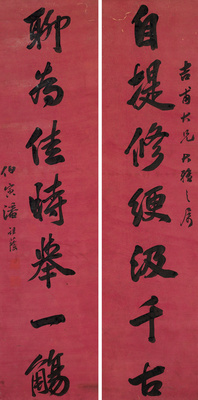 吉甫大兄大雅之属
自提修绠汲千古
聊为佳时举一觞
伯寅潘祖荫